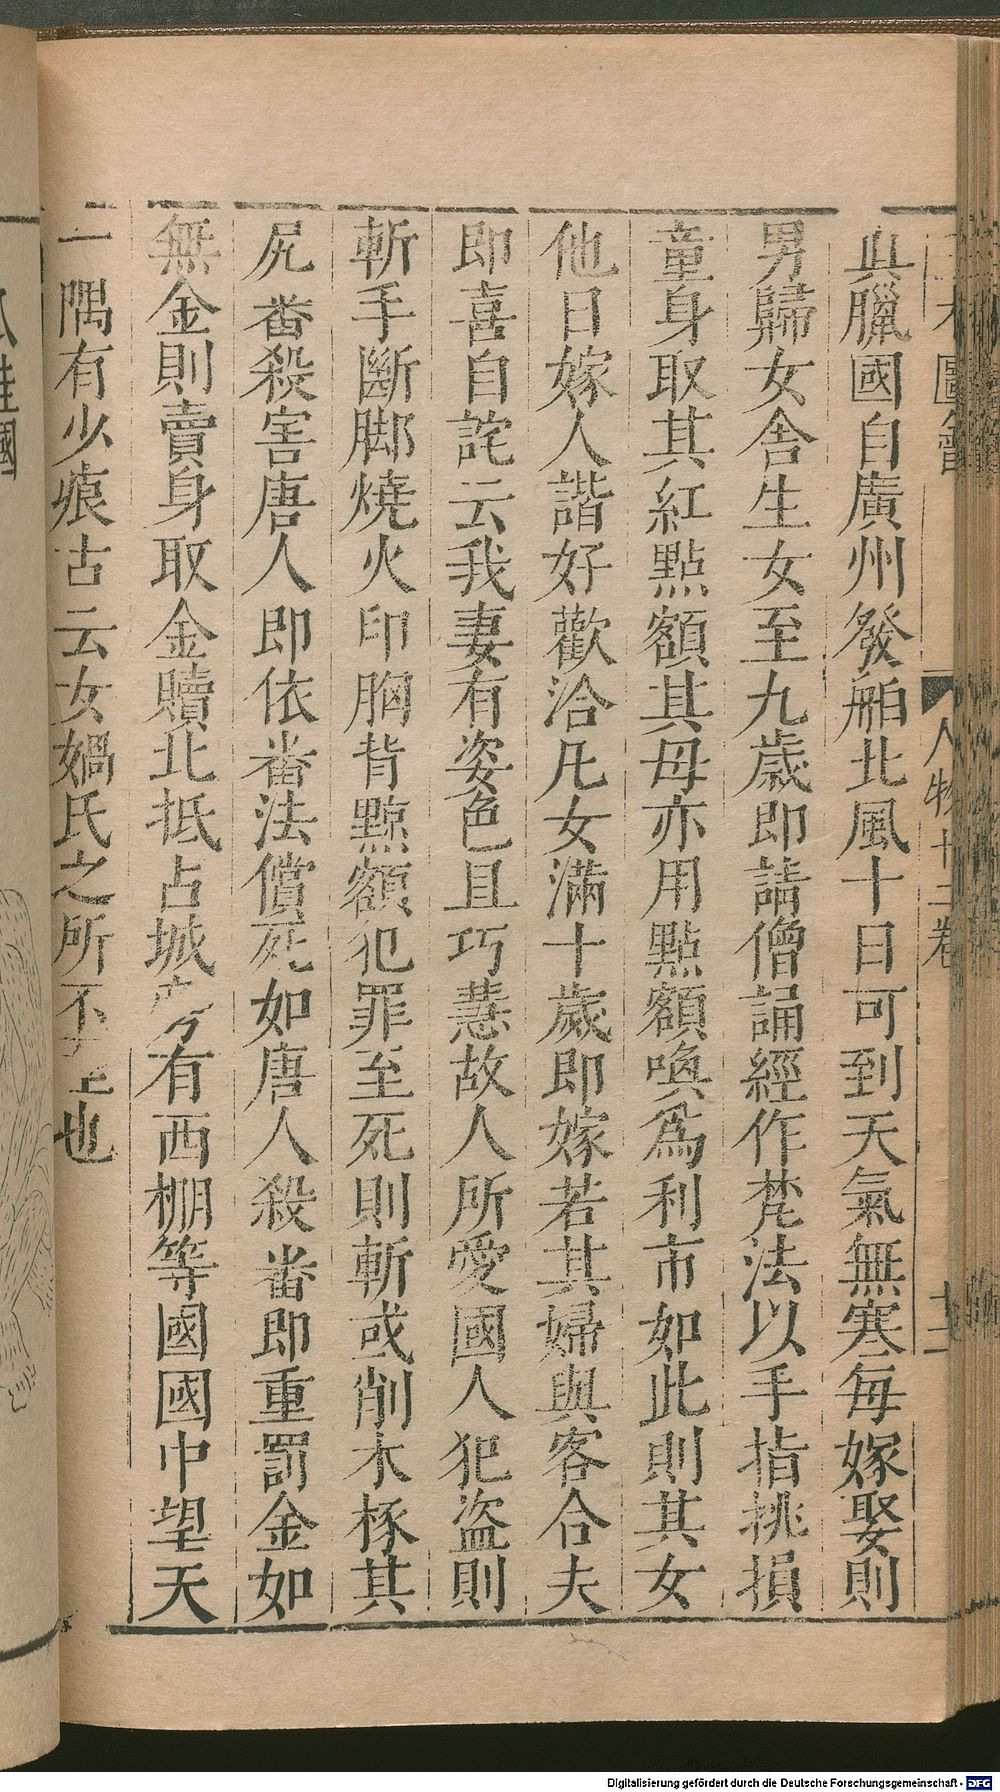 人物十三卷
眞臘國自廣州發舶北風十日可到天氣無寒每嫁娶則
男歸女舍生女至九歲即請僧誦經作梵法以手指挑損
童身取其紅點額其母亦用點額喚爲利市如此則其女
他日嫁人諧好歡洽凡女滿十歲即嫁若其婦與客合夫
即喜自詫云我妻有姿色且巧慧故人所愛國人犯盜則
斬手斷脚燒火印胸背黥額犯罪至死則斬或削木椓其
尻畨殺害唐人即依畨法償死如唐人殺畨即重罰金如
無金則賣身取金贖北抵占城旁有西棚等國國中望天
一隅有少痕古云女媧氏之所不至也
瓜哇國
Digitalisierung gefördert durch die Deutsche Forschungsgemeinschaft - DFG